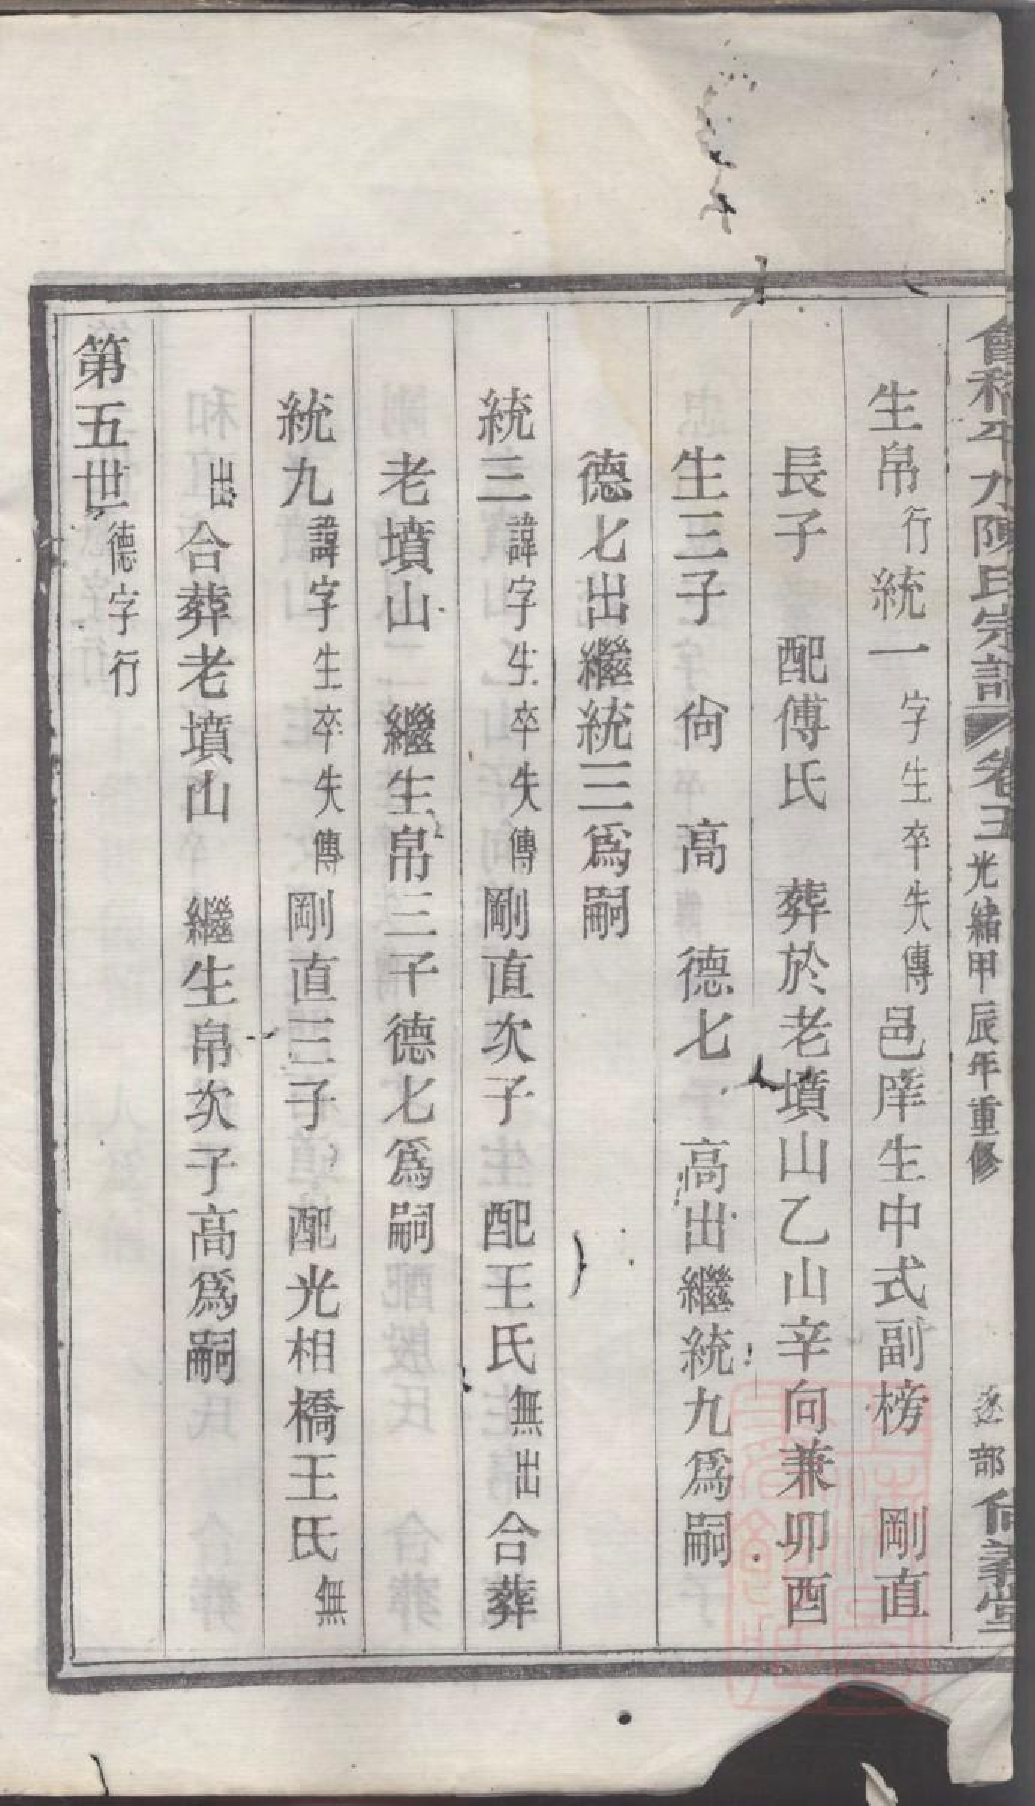 會稽平水陳氏宗譜 卷五 光緒甲辰年重修 部 尙義堂
生帛行統一字生卒失傳邑庠生中式副榜 剛直
長子 配傅氏 葬於老墳山乙山辛向兼卯酉
生三子 尙 高 德七 高出繼統九爲嗣
德七出繼統三爲嗣
統三諱字生卒失傳剛直次子 配王氏無出合葬
老墳山 繼生帛三子德七爲嗣
統九諱字生卒失傳剛直三子 配光相橋王氏無
出合葬老墳山 繼生帛次子高爲嗣
第五世德字行